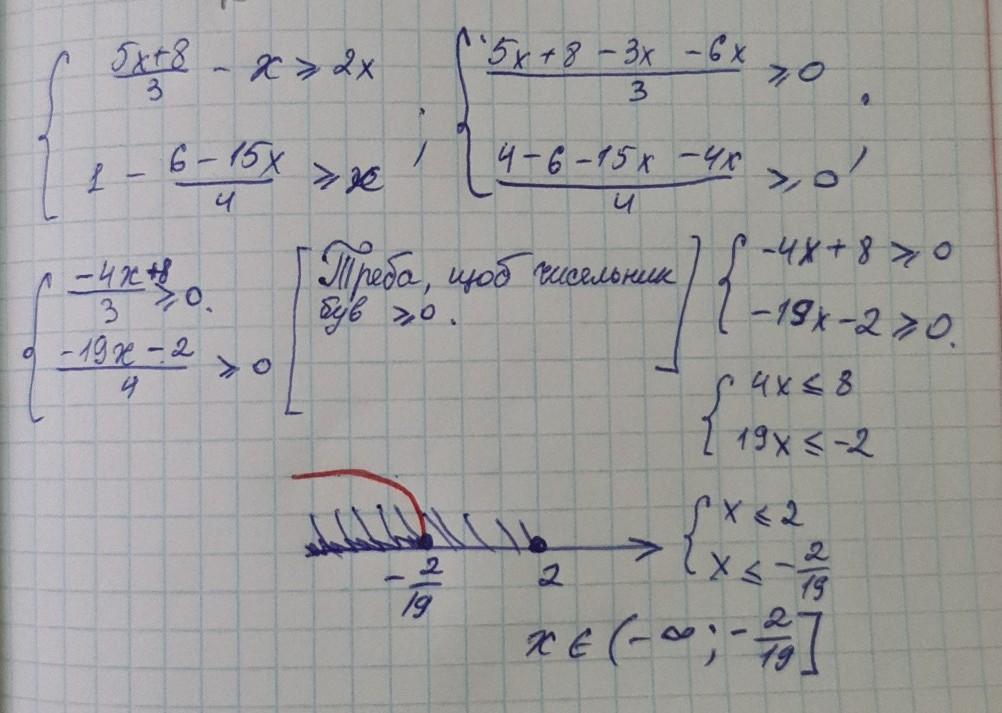 { (5x+8)/3 - x ≥ 2x
1 - (6-15x)/4 ≥ x ;
{ (5x+8-3x-6x)/3 ≥ 0
(4-6-15x-4x)/4 ≥ 0 ;
{ (-4x+8)/3 ≥ 0.
(-19x-2)/4 ≥ 0
[Треба, щоб чисельник
був ≥ 0.]
{ -4x+8 ≥ 0
-19x-2 ≥ 0.
{ 4x ≤ 8
19x ≤ -2
{ x ≤ 2
x ≤ -2/19
-2/19 2
x ∈ (-∞; -2/19]